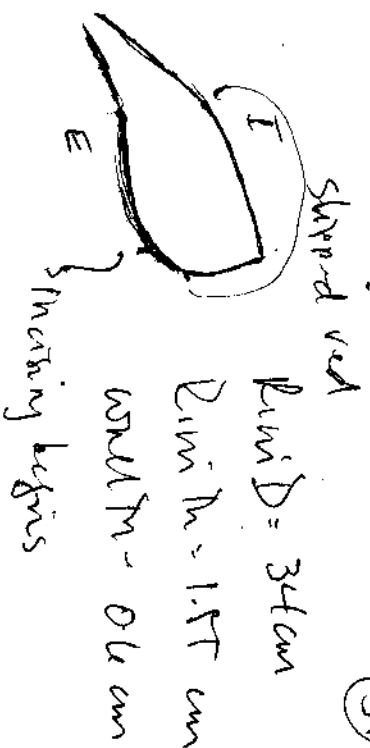 slipped red
I
Rim D = 34 cm
Rim Th = 1.5 cm
E
wall Th - 0.6 cm
incising begins